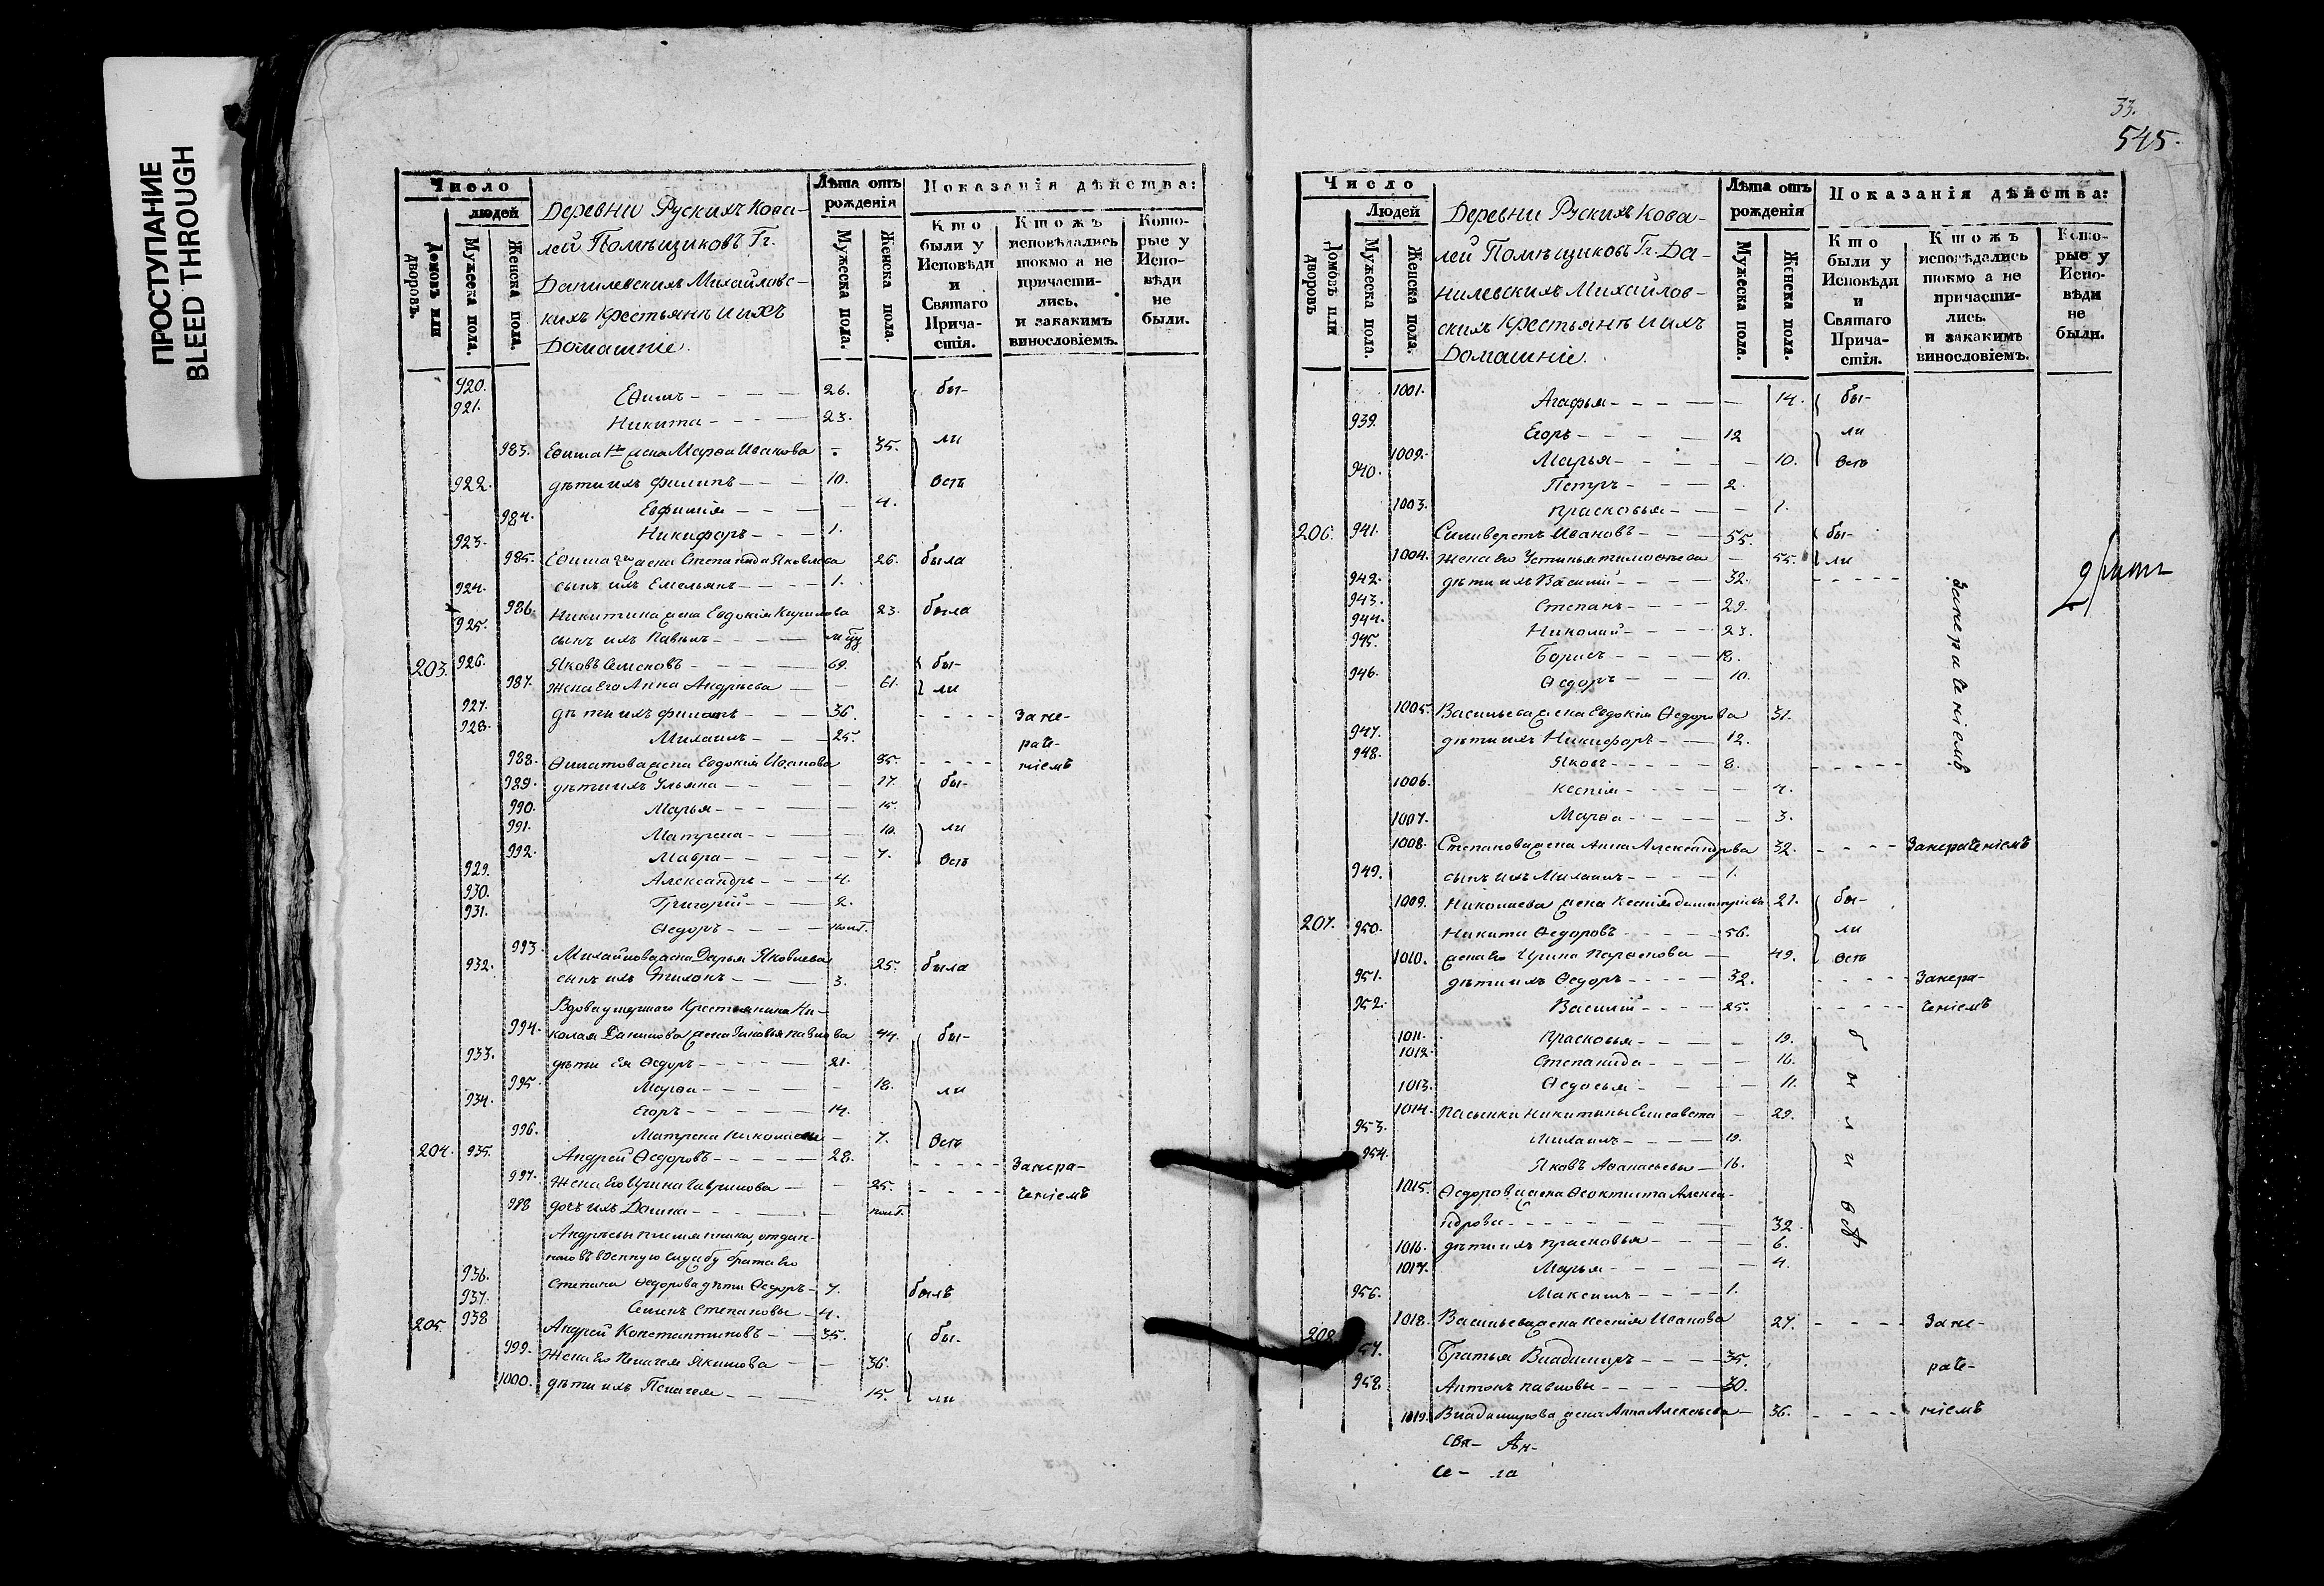 ПРОСТУПАНИЕ
BLEED THROUGH
Число
людей
Домовъ или дворовъ.
Мужеска пола.
Женска пола.
Деревни Рускихъ Кова-
лей Помѣщиковъ Гг.
Данилевскихъ Михайловс-
кихъ крестьянѣ и ихъ
Домашнiе.
Лѣта отъ рожденія
Мужеска пола.
Женска пола.
Показанія дѣйства:
Кто были у Исповѣди и Святаго Прича-стія.
Ктожъ исповѣдались токмо а не причасти-лись, и закакимъ винословіемъ.
Кото-рые у Испо-вѣди не были.
920. Ефимъ 26. бы-
921. Никита 23.
983. Ефима 1го жена Марѳа Иванова 35. ли
922. дѣти ихъ Филипъ 10. всѣ
984. Евфимія 4.
923. Никифоръ 1.
985. Ефима 2го жена Степанида Яковлева 26. была
924. сынъ ихъ Емельянъ 1.
986. Никитина жена Евдокія Кирилова 23. была
925. сынъ ихъ Павелъ
203. 926. Яковъ Семеновъ 69. бы-
987. жена Его Анна Андрѣева 61. ли
927. дѣти ихъ Филатъ 36. Зане-
928. Михаилъ 25. раче-
988. Филатова жена Евдокія Иванова 35. ніемъ
989. дѣти ихъ Ульяна 17. бы-
990. Марья 15.
991. Матрена 10. ли
992. Мавра 7. всѣ
929. Александръ 4.
930. Григорій 2.
931. Ѳедоръ пол.
993. Михайлова жена Дарья Яковлева 25. была
932. сынъ ихъ Тихонъ 3.
Вдова умершаго Крестьянина Ни-
994. колая Данилова жена Зиновья Павлова 44. бы-
933. дѣти Ея Ѳедоръ 21.
995. Марѳа 18. ли
934. Егоръ 14.
996. Матрена Николаевы 7. всѣ
204. 935. Андрей Ѳедоровъ 28. Занера-
997. Жена Его Ирина Гаврилова 25. ченіемъ
998 дочь ихъ Домна пол.
Андрѣевы племянники, отдан-
наго въ военную службу брата Его
936. Степана Ѳедорова дѣти Ѳедоръ 7. былъ
937. Семенъ Степановы 4.
205. 938 Андрей Константиновъ 35. бы-
999. Жена Его Пелагея Якимова 36.
1000. дѣти ихъ Пелагея 15. ли
33.
545.
Число
Людей
Домовъ или дворовъ
Мужеска пола.
Женска пола.
Деревни Рускихъ Кова-
лей Помѣщиков Гг. Да-
нилевскихъ Михайлов-
скихъ Крестьянѣ и ихъ
Домашніе.
Лѣта отъ рожденія
Мужеска пола.
Женска пола.
Показанія дѣйства:
Кто были у Исповѣди и Святаго Прича-стія.
Ктожъ исповѣдались токмо а не причасти-лись. и закакимъ винословіемъ.
Кото-рые у Испо-вѣди не были.
1001. Агафья 14. бы-
939. Егоръ 12 ли
1002. Марья 10. всѣ
940. Петръ 2.
1003. Прасковья 1.
206. 941. Силиверстъ Ивановъ 55. бы-
1004. Жена Его Устинья Тимофеева 55. ли
942. дѣти ихъ Василій 32.
943. Степанъ 29.
944. Николай 23.
945. Борисъ 18.
946. Ѳедоръ 10.
Занераченіемъ
1005. Васильева жена Евдокія Ѳедорова 31.
947. дѣти ихъ Никифоръ 12.
948. Яковъ 8.
1006. Ксенія 4.
1007. Марѳа 3.
1008. Степанова жена Анна Александрова 32. Занераченіемъ
949. сынъ ихъ Михаилъ 1.
1009. Николаева жена Ксенія Димитріева 21. бы-
207. 950. Никита Ѳедоровъ 56. ли
1010. жена Его Ирина 49. всѣ
951. дѣти ихъ Ѳедоръ 32. Занера-
952. Василій 25. ченіемъ
1011. Прасковья 19.
1012. Степанида 16.
1013. Ѳедосья 11.
были всѣ
1014. Пасынки Никитины Елисавета 29.
953. Михаилъ 19.
954. Яковъ Аѳанасьевы 16.
1015. Ѳедорова жена Ѳеоктиста Алекса-
ндрова 32
1016. дѣти ихъ Прасковья 6.
1017. Марья 4.
956. Максимъ 1.
1018. Васильева жена Ксенія Иванова 27. Зане-
208. 57. Братья Владимиръ 35. раче-
958. Антонъ Павловы 30.
1019. Владимирова жена Анна Алексѣева 36. ніемъ
свя- Ан-
се- ла